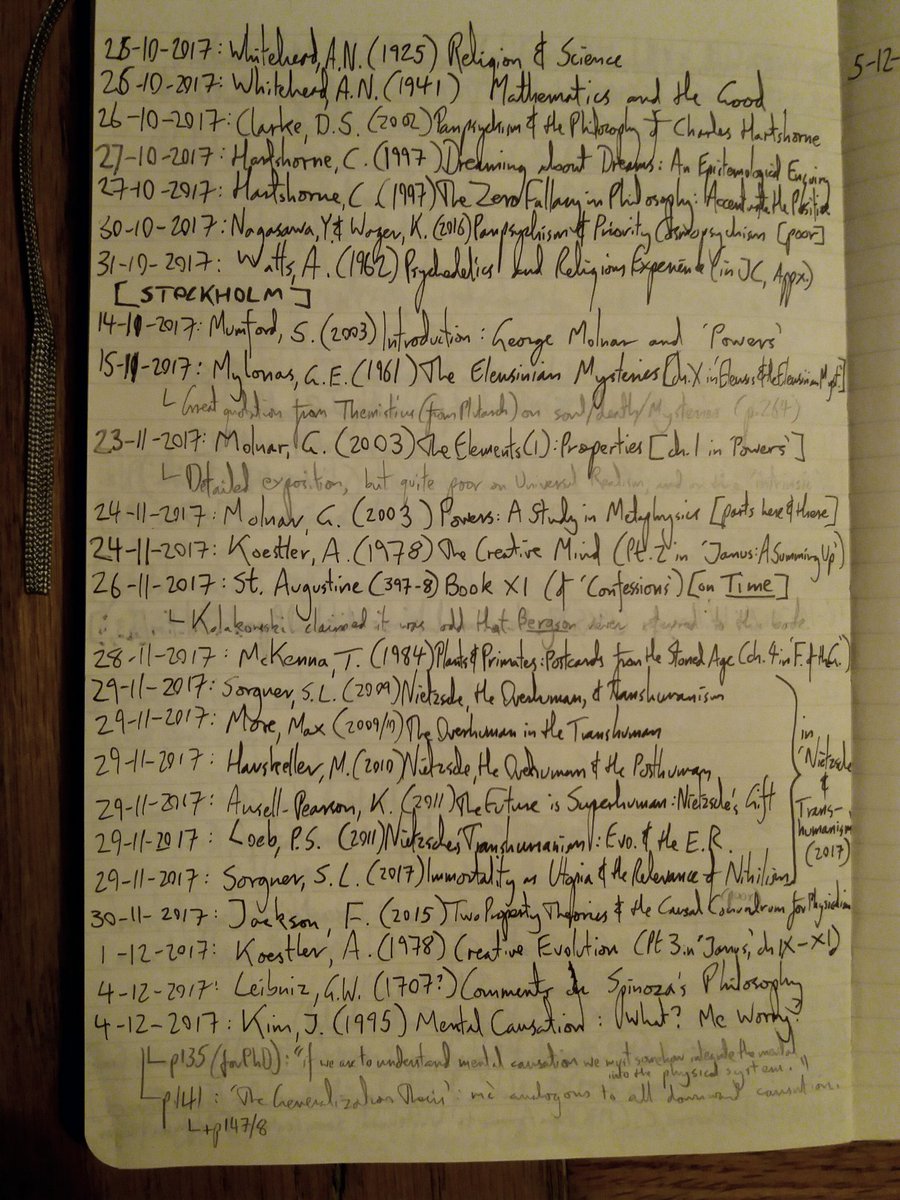 25-10-2017: Whitehead, A.N. (1925) Religion & Science
26-10-2017: Whitehead, A.N. (1941) Mathematics and the Good
26-10-2017: Clarke, D.S. (2002) Panpsychism & the Philosophy of Charles Hartshorne
27-10-2017: Hartshorne, C. (1997) Dreaming about Dreams: An Epistemological Enquiry
27-10-2017: Hartshorne, C. (1997) The Zero Fallacy in Philosophy: Accentuate the Positive
30-10-2017: Nagasawa, Y. & Wager, K. (2016) Panpsychism & Priority Cosmopsychism [poor]
31-10-2017: Watts, A. (1962) Psychedelics and Religious Experience (in JC, Appx.)
[STOCKHOLM]
14-11-2017: Mumford, S. (2003) Introduction: George Molnar and 'Powers'
15-11-2017: Mylonas, G.E. (1961) The Eleusinian Mysteries [ch.X in Eleusis & the Eleusinian Myst.]
Great quotation from Themistius (from Plutarch) on soul/death/Mysteries (p.264)
23-11-2017: Molnar, G. (2003) The Elements (1): Properties [ch.1 in 'Powers']
Detailed exposition, but quite poor on Universal Realism, and on the
24-11-2017: Molnar, G. (2003) Powers: A Study in Metaphysics [parts here & there]
24-11-2017: Koestler, A. (1978) The Creative Mind (Pt.2 in 'Janus: A Summing Up')
26-11-2017: St. Augustine (397-8) Book XI (of 'Confessions') [on Time]
Kolakowski claimed it was odd that Bergson never referred to this book
28-11-2017: McKenna, T. (1984) Plants & Primates: Postcards from the Stoned Age (ch.4 in 'F. of the G.')
29-11-2017: Sorgner, S.L. (2009) Nietzsche, the Overhuman, & Transhumanism
29-11-2017: More, Max (2009/17) The Overhuman in the Transhuman
29-11-2017: Hauskeller, M. (2010) Nietzsche, the Overhuman & the Posthuman
29-11-2017: Ansell-Pearson, K. (2011) The Future is Superhuman: Nietzsche's Gift
29-11-2017: Loeb, P.S. (2011) Nietzsche's Transhumanism: Evo. & the E.R.
29-11-2017: Sorgner, S.L. (2017) Immortality as Utopia & the Relevance of Nihilism
in 'Nietzsche
&
Trans-
humanism'
(2017)
30-11-2017: Jackson, F. (2015) Two Property Theories & the Causal Conundrum for Physicalism
1-12-2017: Koestler, A. (1978) Creative Evolution (Pt 3 in 'Janus', ch IX-XI)
4-12-2017: Leibniz, G.W. (1707?) Comments on Spinoza's Philosophy
4-12-2017: Kim, J. (1995) Mental Causation: What? Me Worry?
p135 (for PhD): "if we are to understand mental causation we must somehow integrate the mental
into the physical system."
p141: 'The Generalization Thesis': mc analogous to all downward causation.
+p147/8
5-12-